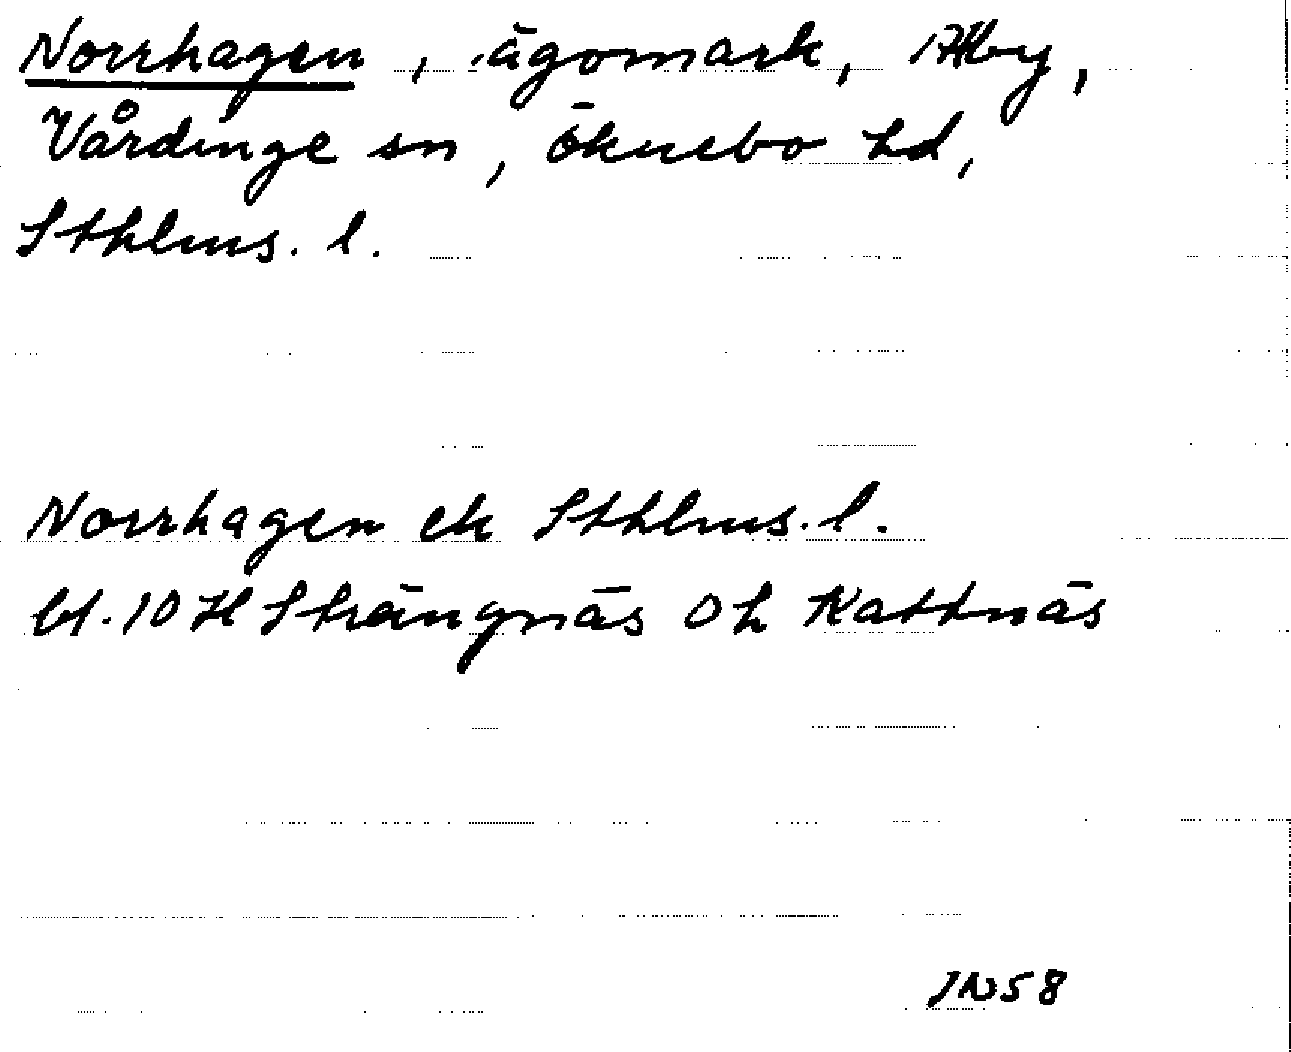 Norrhagen, ägomark, Åby,
Vårdinge sn, Öknebo hd,
Sthlms. l.
Norrhagen ek Sthlms. l.
bl. 10 H Strängnäs Oh Kattnäs
JN58